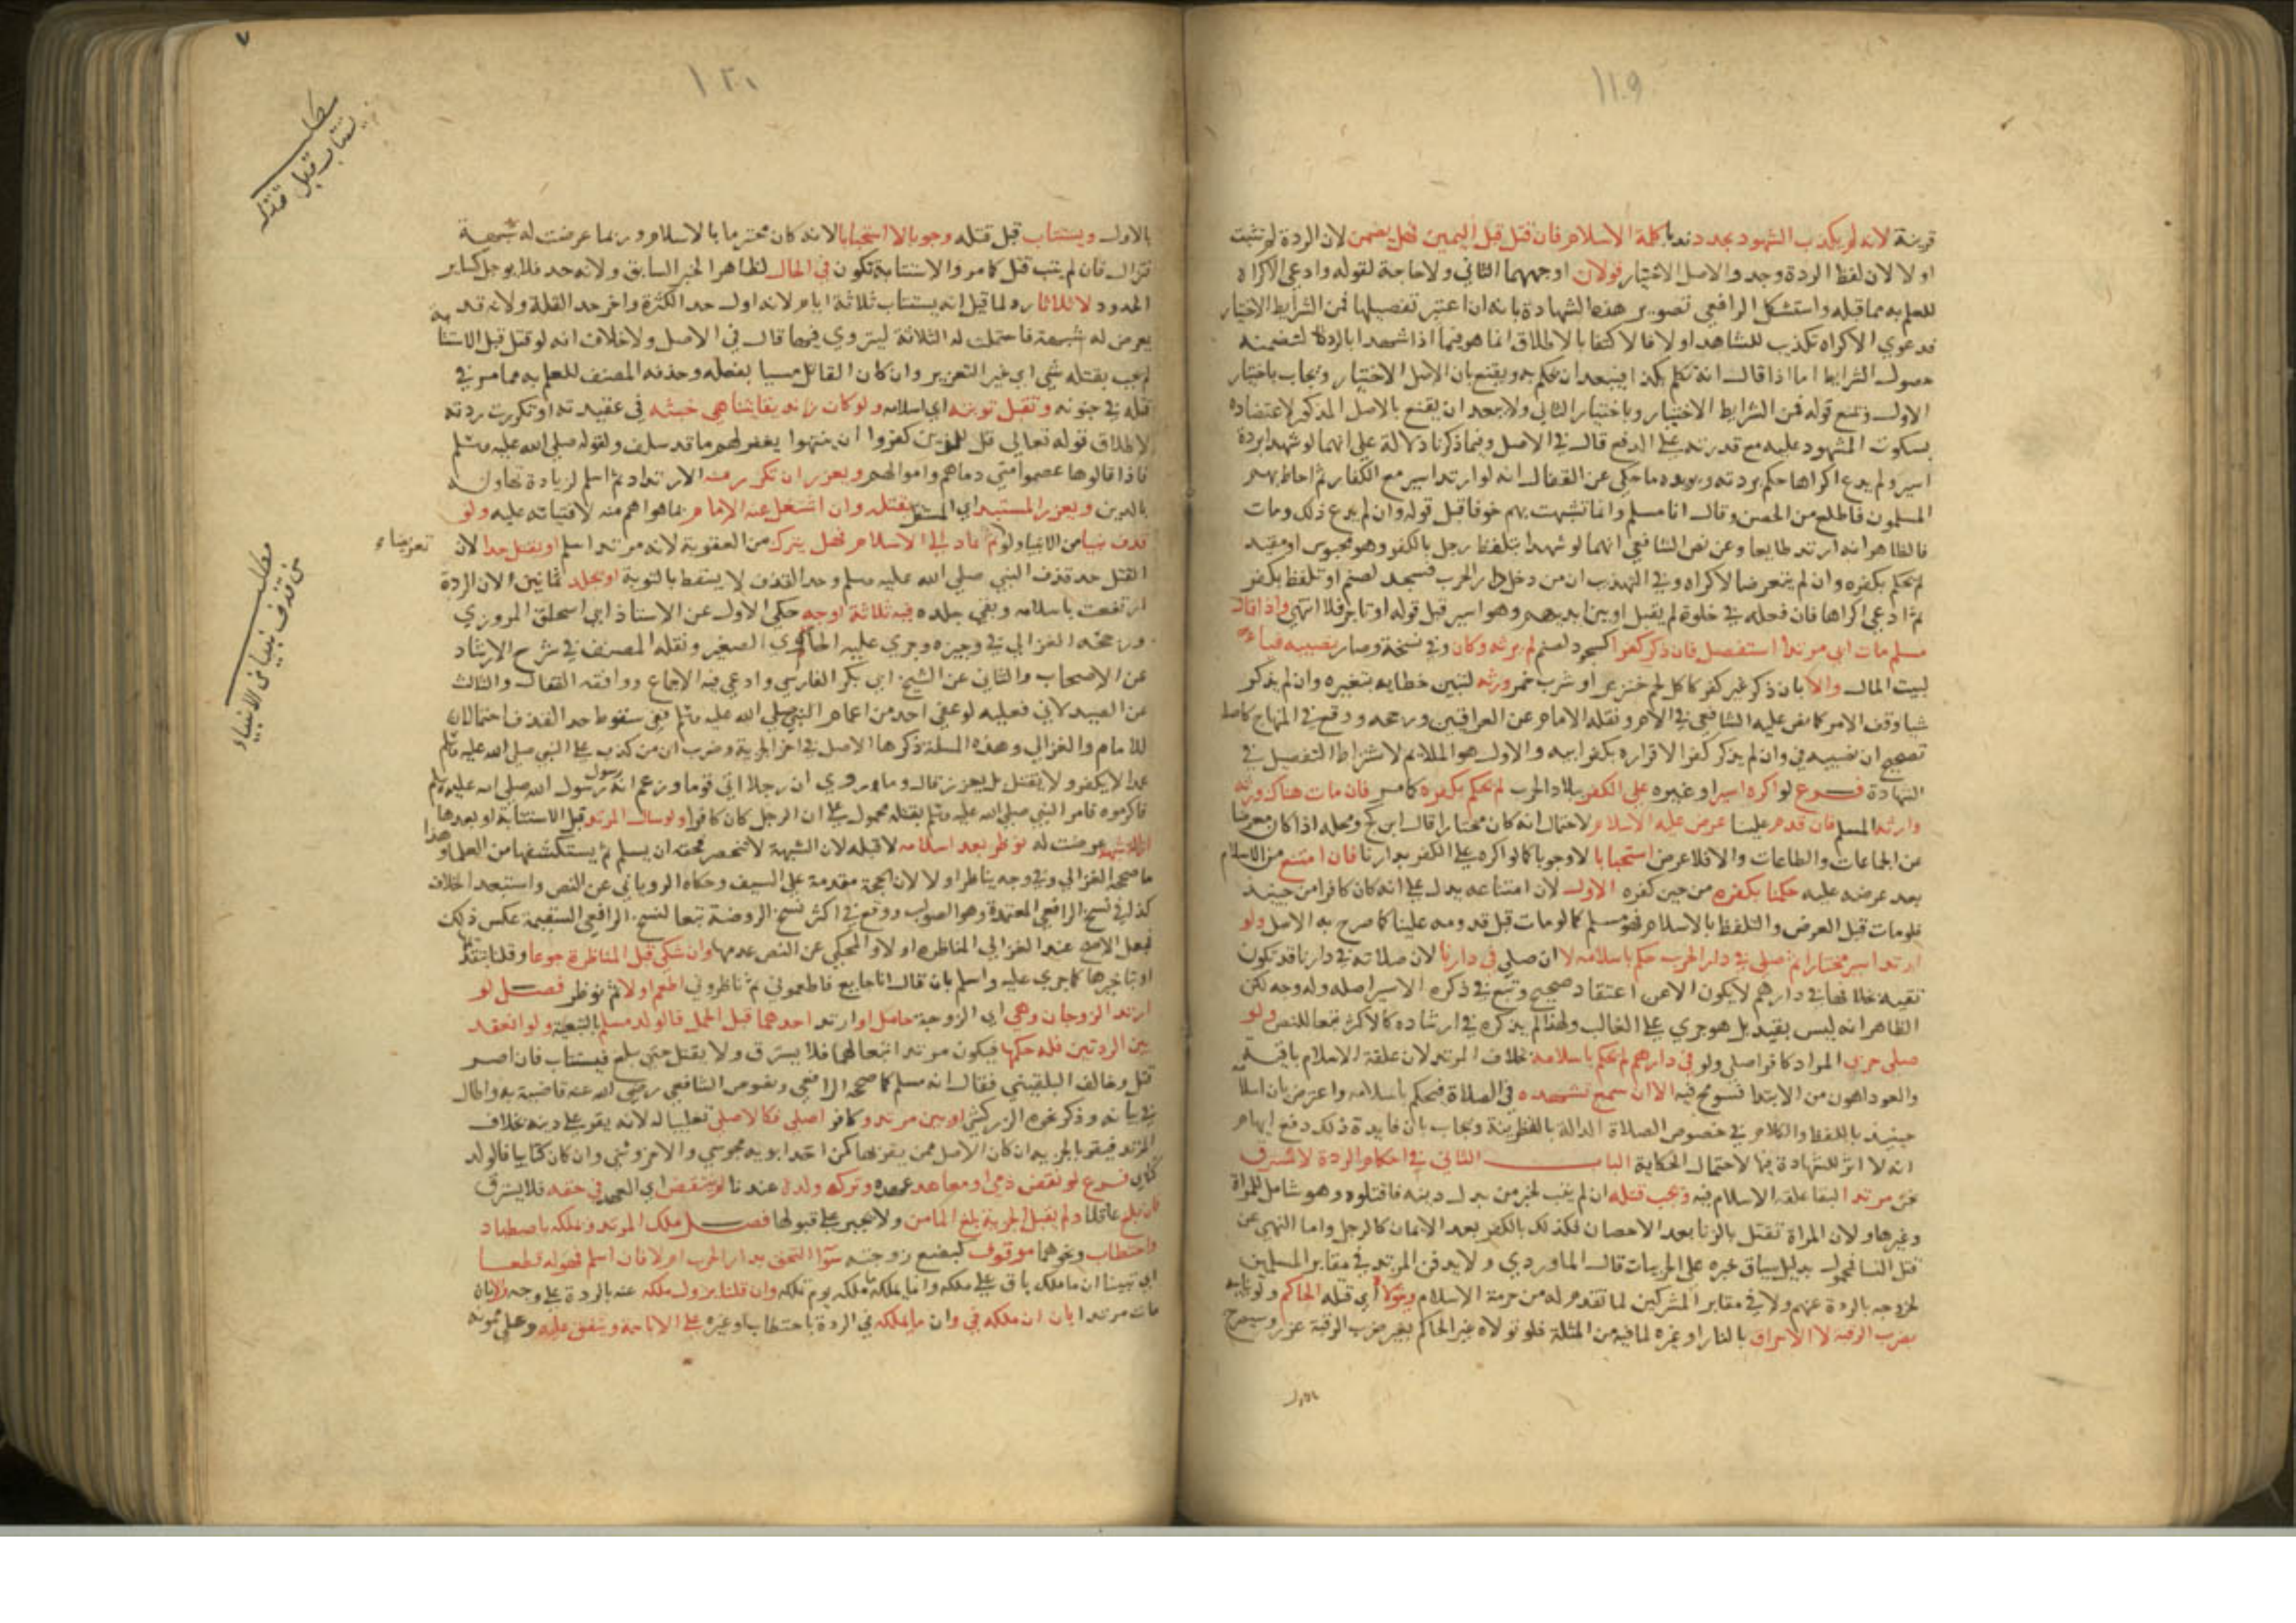 ١١٠٩
قرينة لانه لم يكذب الشهود يجدد ندبا كلمة الاسلام فان قتل قبل اليمين فهل يضمن لان الردة لم تثبت
اولا لان لفظ الردة وجد والاصل الاختيار قولان اوجههما الثاني ولا حاجة لقوله وادعى الاكراه
للعلم به مما قبله واستشكل الرافعي تصوير هذه الشهادة بانه ان اعتبر تفصيلها فمن الشرايط الاختيار
فدعوي الاكراه تكذيب للشاهد اولا فالاكتفا بالاطلاق انما هو فيما اذا شهدا بالردة لتضمنه
حصول الشرايط اما اذا قال انه تكلم بكذا فيبعد ان يحكم به ويقنع بان الاصل الاختيار ويجاب باختيار
الاول ونمنع قوله فمن الشرايط الاختيار وباختيار الثاني ولا يبعد ان يقنع بالاصل المذكور لاعتضاده
بسكوت المشهود عليه مع قدرته على الدفع قال في الاصل وفيما ذكرنا دلالة على انهما لو شهدا بردة
اسير ولم يدع اكراها حكم بردته ويويده ما حكي عن القفال انه لو ارتد اسير مع الكفار ثم احاط بهم
المسلمون فاطلع من الحصن وقال انا مسلم وانما تشبهت بهم خوفا قبل قوله وان لم يدع ذلك ومات
فالظاهر انه ارتد طايعا وعن نص الشافعي انهما لو شهدا بتلفظ رجل بالكفر وهو محبوس او مقيد
لم يحكم بكفره وان لم يتعرضا لاكراه وفي التهذيب ان من دخل دار الحرب فسجد لصنم او تلفظ بكفر
ثم ادعى اكراها فان فعله في خلوة لم يقبل او بين ايديهم وهو اسير قبل قوله او تاجر فلا انتهى واذا قال
مسلم مات ابي مرتدا استفصل فان ذكر كفرا كسجود لصنم لم يرثه وكان وفي نسخة وصار نصيبه فياء
لبيت المال والا بان ذكر غير كفر كاكل لحم خنزير او شرب خمر ورثه لتبين خطايه بتغيره وان لم يذكر
شيا وقف الامر كما نص عليه الشافعي في الام ونقله الامام عن العراقيين ورجحه ووقع في المنهاج كاصله
تصحيح ان نصيبه في وان لم يذكر كفرا لاقراره بكفر ابيه والاول هو الملايم لاشتراط التفصيل في
الشهادة فــرع لو اكره اسيرا وغيره على الكفر ببلاد الحرب لم يحكم بكفره كما مر فان مات هناك ورثه
وارثه المسلم فان قدم علينا عرض عليه الاسلام لاحتمال انه كان مختارا قال ابن كج ومحله اذا كان معرضا
عن الجماعات والطاعات والا فلا عرض استحبابا لا وجوبا كما لو اكره على الكفر بدارنا فان امتنع من الاسلام
بعد عرضه عليه حكمنا بكفره من حين كفره الاول لان امتناعه يدل على انه كان كافرا من حينيذ
فلو مات قبل العرض والتلفظ بالاسلام فهو مسلم كما لو مات قبل قدومه علينا كما صرح به الاصل ولو
ارتد اسير مختارا ثم صلى في دار الحرب حكم باسلامه لا ان صلى في دارنا لان صلاته في دارنا قد تكون
تقية بخلافها في دارهم لا يكون الا عن اعتقاد صحيح وتبع في ذكره الاسير اصله وله وجه لكن
الظاهر انه ليس بقيد بل هو جري على الغالب ولهذا لم يذكره في ارشاده كالاكثر تبعا للنص ولو
صلى حربي المراد كافر اصلي ولو في دارهم لم يحكم باسلامه بخلاف المرتد لان علقة الاسلام باقية
والعود اهون من الابتدا فسومح فيه الا ان سمع تشهده في الصلاة فيحكم باسلامه واعترض بان اسلامه
حينيذ باللفظ والكلام في خصوص الصلاة الدالة بالقرينة ويجاب بان فايدة ذلك دفع ايهام
انه لا اثر للشهادة فيها لاحتمال الحكاية البــاب الثاني في احكام الردة لا يسترق
مرتد البقا علقة الاسلام فيه ويجب قتله ان لم يتب لخبر من بدل دينه فاقتلوه وهو شامل للمراة
وغيرها ولان المراة تقتل بالزنا بعد الاحصان فكذلك بالكفر بعد الايمان كالرجل واما النهي عن
قتل النسا فمحمول بدليل سياق خبره على الحربيات قال الماوردي ولا يدفن المرتد في مقابر المسلمين
لخروجه بالردة عنهم ولا في مقابر المشركين لما تقدم له من حرمة الاسلام ويتولى اي قتله الحاكم ولو بنايبه
بضرب الرقبة لا الاحراق بالنار او غيره لما فيه من المثلة فلو تولاه غير الحاكم بغير ضرب الرقبة عزر وسيصرح
بالاول
٧
١٢٠١
مطلب
يستتاب قبل قتله
بالاول ويستتاب قبل قتله وجوبا لا استحبابا لانه كان محترما بالاسلام وربما عرضت له شبهة
فتزال فان لم يتب قتل كما مر والاستتابة تكون في الحال لظاهر الخبر السابق ولانه حد فلا يوجل كساير
الحدود لا ثلاثا رد لما قيل انه يستتاب ثلاثة ايام لانه اول حد الكثرة واخر حد القلة ولانه قد
يعرض له شبهة فاحتملت له الثلاثة ليتروي فيها قال في الاصل ولا خلاف انه لو قتل قبل الاستتابة
لم يجب بقتله شي اي غير التعزير وان كان القاتل مسيا بفعله وحذفه المصنف للعلم به مما مر في
قتله في جنونه وتقبل توبته اي اسلامه ولو كان زنديقا يتناهي خبثه في عقيدته او تكررت ردته
لاطلاق قوله تعالى قل للذين كفروا ان ينتهوا يغفر لهم ما قد سلف ولقوله صلى الله عليه وسلم
فاذا قالوها عصموا مني دماهم واموالهم ويعزر ان تكرر منه الارتداد ثم اسلم لزيادة تهاونه
بالدين ويعزر المستبد اي المستقل بقتله وان اشتغل عنه الامام بما هو اهم منه لافتياته عليه ولو
قذف نبيا من الانبيا ولو تعريضاء ثم عاد الى الاسلام فهل يترك من العقوبة لانه مرتد اسلم او يقتل حدا لان
القتل حد قذف النبي صلى الله عليه وسلم وحد القذف لا يسقط بالتوبة او يجلد ثمانين لان الردة
ارتفعت باسلامه وبقي جلده فيه ثلاثة اوجه حكي الاول عن الاستاذ ابي اسحاق المروزي
ورجحه الغزالي في وجيزه وجري عليه الحاوي الصغير ونقله المصنف في شرح الارشاد
عن الاصحاب والثاني عن الشيخ ابي بكر الفارسي وادعى فيه الاجماع ووافقه القفال والثالث
عن الصيدلاني فعليه لو عفي احد من اعمام النبي صلى الله عليه وسلم ففي سقوط حد القذف احتمالان
للامام والغزالي وهذه المسلة ذكرها الاصل في اخر الجزية وضرب ان من كذب على النبي صلى الله عليه وسلم
عمدا لا يكفر ولا يقتل بل يعزر قال وما روي ان رجلا اتى قوما وزعم انه رسول رسول الله صلى الله عليه وسلم
فاكرموه فامر النبي صلى الله عليه وسلم بقتله محمول على ان الرجل كان كافرا ولو سال المرتد قبل الاستتابة او بعدها
ازالة شبهة عرضت له نوظر بعد اسلامه لا قبله لان الشبهة لا تنحصر فحقه ان يسلم ثم يستكشفها من العلما وهذا
ما صححه الغزالي وفي وجه يناظر اولا لان الحجة مقدمة على السيف وحكاه الروياني عن النص واستبعد الخلاف
كذا في نسخ الرافعي المعتمدة وهو الصواب ووقع في اكثر نسخ الروضة تبعا لنسخ الرافعي السقيمة عكس ذلك
فجعل الاصح عند الغزالي المناظرة اولا والمحكي عن النص عدمها وان شكي قبل المناظرة جوعا وقلنا بتقديمها
او تاخيرها كما جري عليه واسلم بان قال انا جايع فاطعموني ثم ناظروني اطعم اولا ثم نوظر فصــل لو
ارتد الزوجان وهي اي الزوجة حامل او ارتد احدهما قبل الحمل فالولد مسلم بالتبعية ولو انعقد
بين الردتين فله حكمها فيكون مرتدا تبعا لهما فلا يسترق ولا يقتل حتى يبلغ فيستتاب فان اصر
قتل وخالف البلقيني فقال انه مسلم كما صححه الرافعي ونصوص الشافعي رضي الله عنه قاضية به واطال
في بيانه وذكر نحوه الزركشي او بين مرتد وكافر اصلي فكالاصلي تغليبا له لانه يقر على دينه بخلاف
المرتد فيقر بالجزية ان كان الاصل ممن يقر بها كمن احد ابويه مجوسي والاخر وثني وان كان كتابيا فالولد
كتابي فــرع لو نقض ذمي او معاهد عهده وترك ولده عندنا لم ينتقض اي العهد في حقه فلا يسترق
فان بلغ عاقلا ولم يقبل الجزية بلغ المامن ولا يجبر على قبولها فصــل ملك المرتد وتملكه باصطياد
واحتطاب ونحوهما موقوف كبضع زوجته سوا التحق بدار الحرب ام لا فان اسلم فهو له قطعا
اي تبينا ان ما ملكه باق على ملكه وان ما يملكه ملكه يوم تملكه وان قلنا يزول ملكه عنه بالردة على وجه والا بان
مات مرتدا بان ان ملكه في وان ما يملكه في الردة باحتطاب وغيره على الاباحة وينفق عليه وعلى ممونه
مطلب
من قذف نبيا من الانبياء